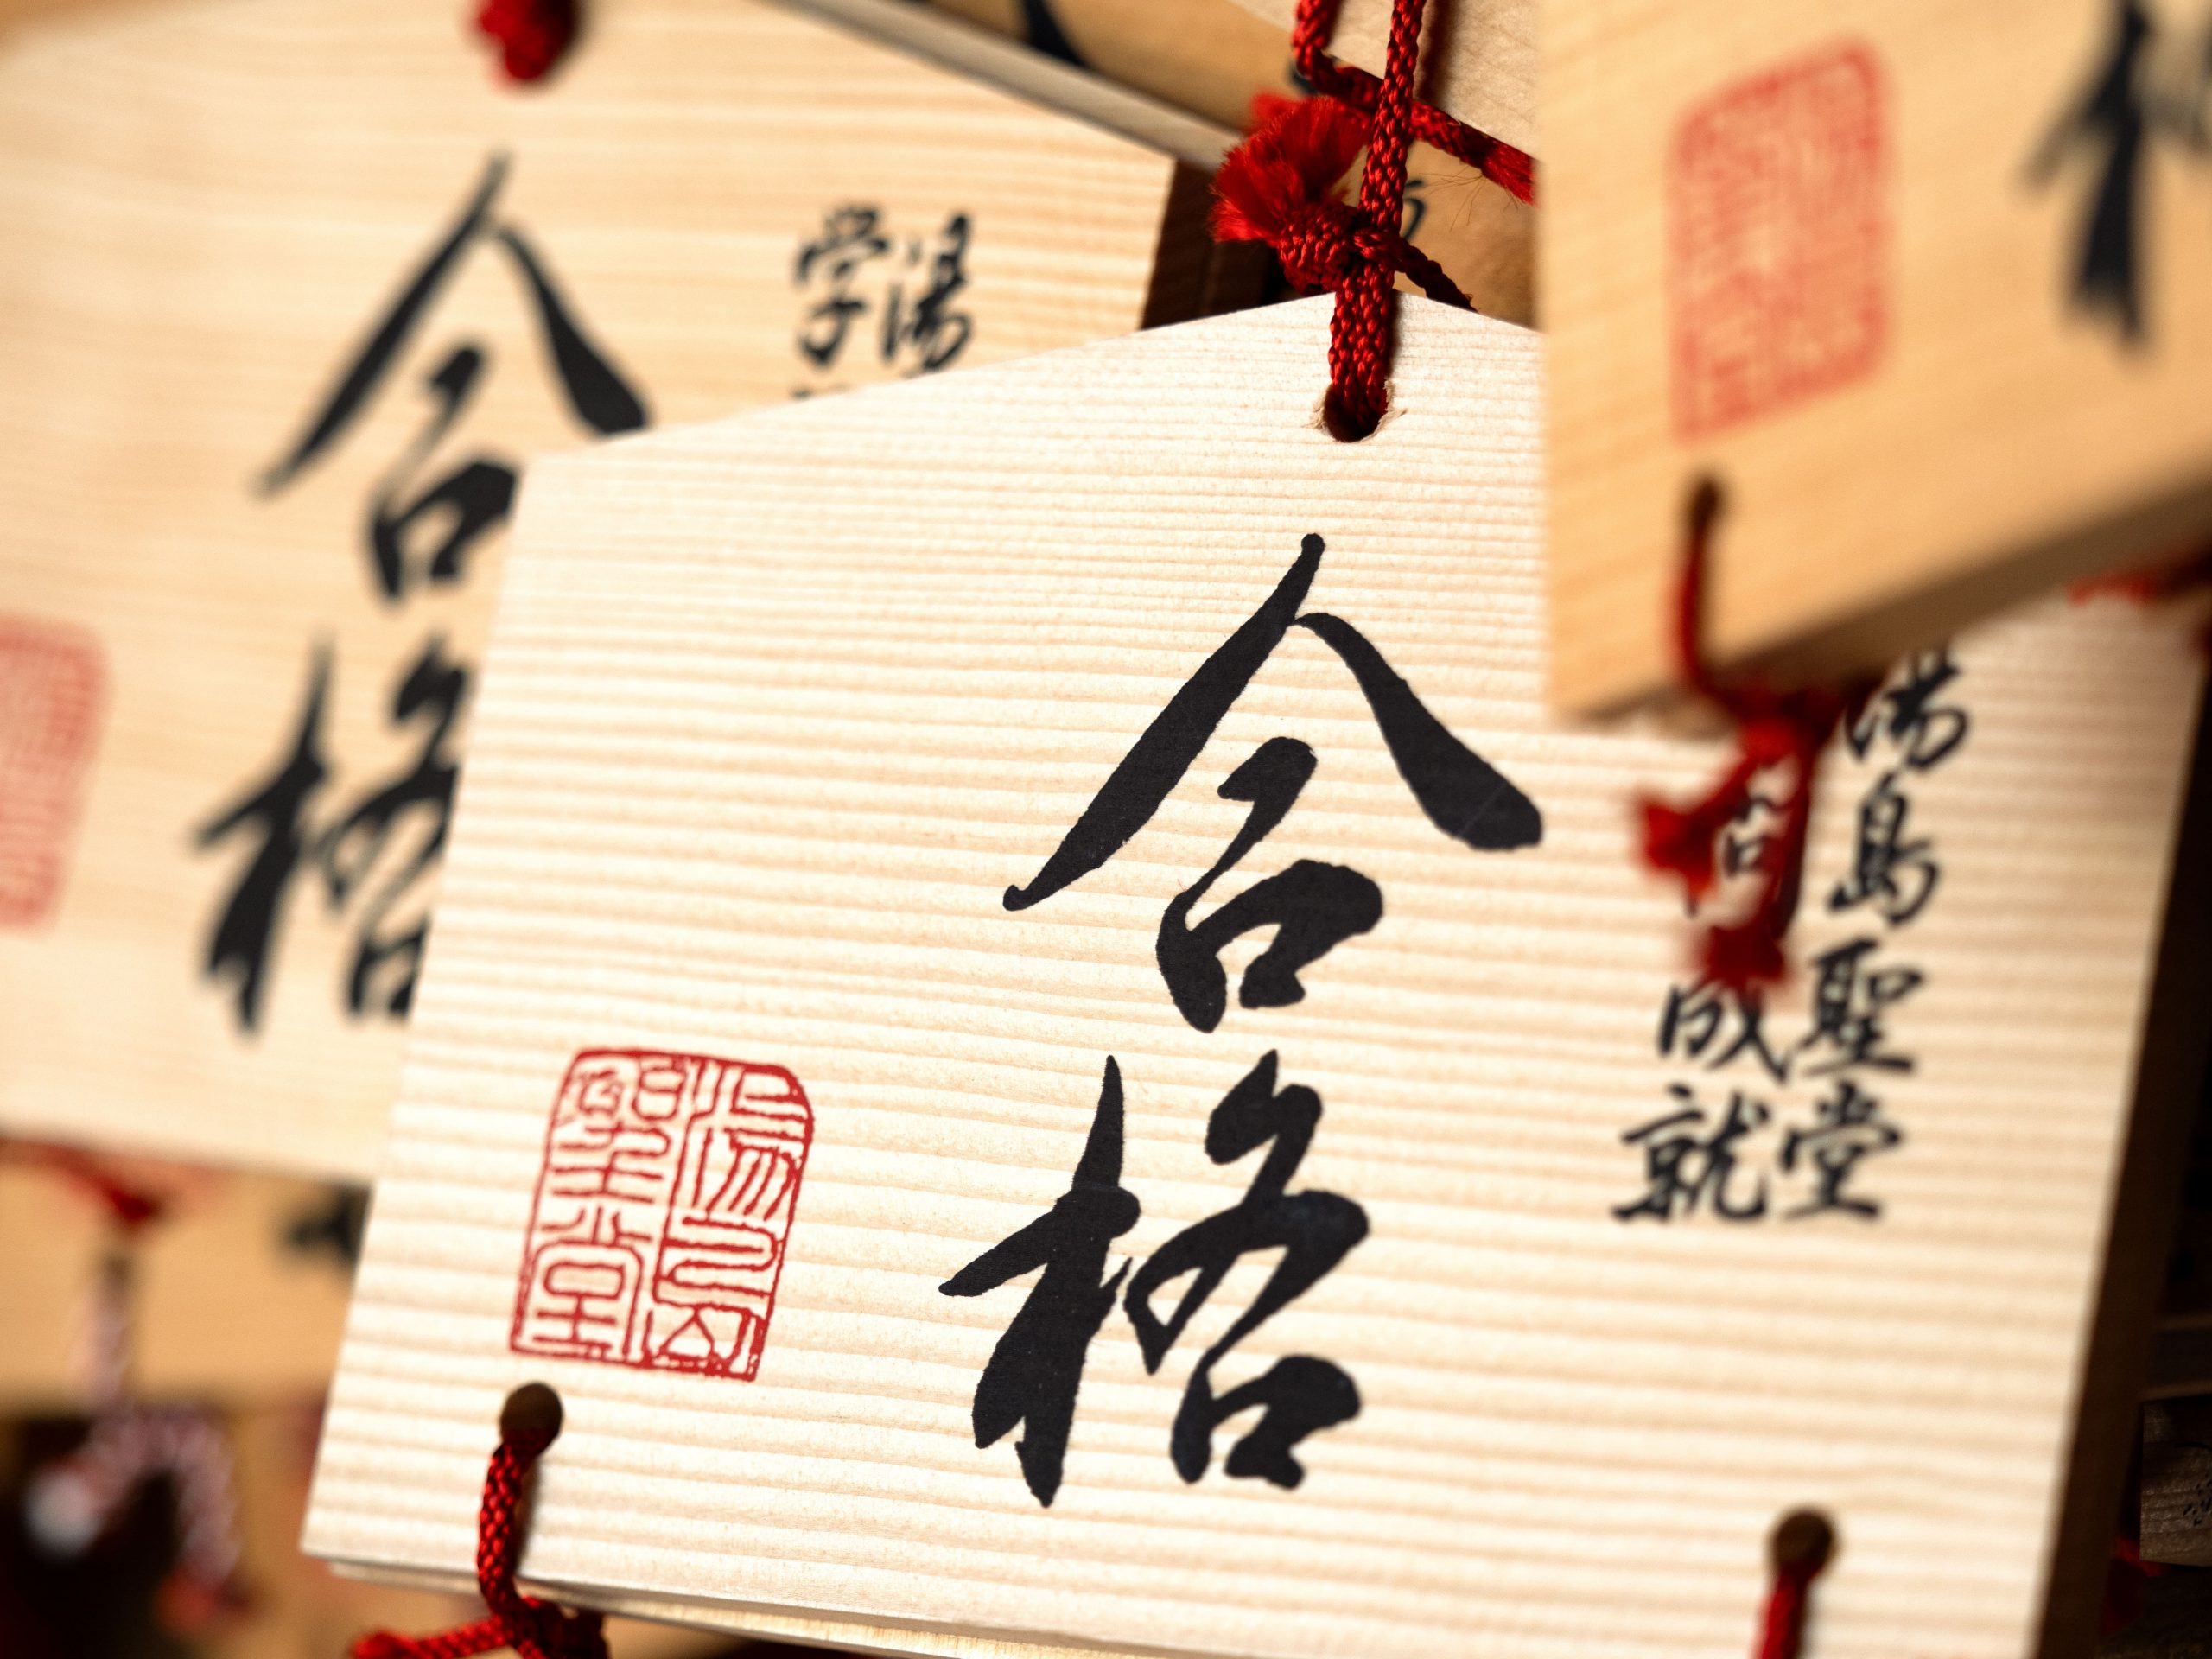 合格
湯
学
湯島聖堂
成就
合格
湯島聖堂